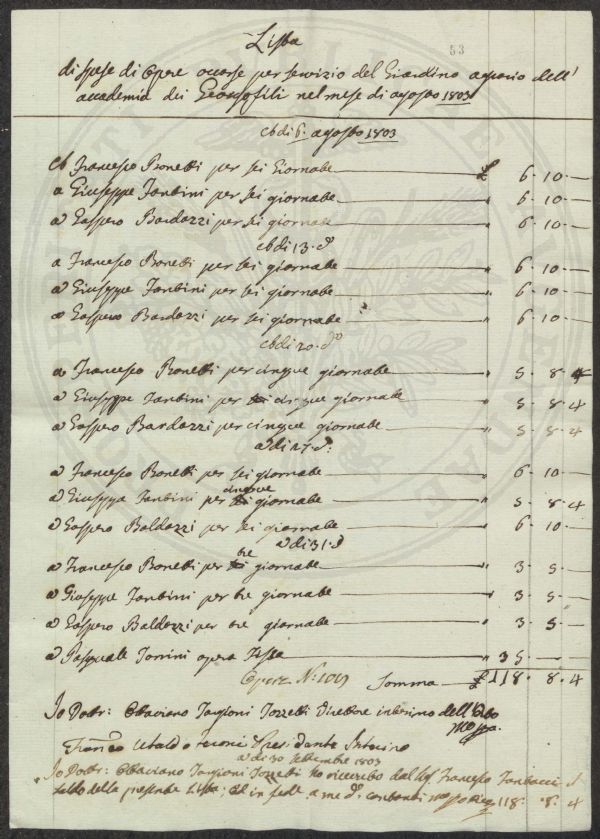 53
Lista
di spese di Opere occorse per servizio del Giardino agrario dell'
accademia dei Georgofili nel mese di agosto 1803
Adi 6. agosto 1803
A Francesco Bonetti per sei Giornate £ 6. 10. —
a Giuseppe Fantini per sei giornate " 6. 10. —
a Gaspero Bardazzi per sei giornate " 6. 10. —
Adi 13. do
a Francesco Bonetti per sei giornate " 6. 10. —
a Giuseppe Fantini per sei giornate " 6. 10. —
a Gaspero Bardazzi per sei giornate " 6. 10. —
Adi 20. do
a Francesco Bonetti per cinque giornate " 5. 8. 4
a Giuseppe Fantini per cinque giornate " 5. 8. 4
a Gaspero Bardazzi per cinque giornate " 5. 8. 4
adi 27. d:
a Francesco Bonetti per sei giornate " 6. 10 —
a Giuseppe Fantini per cinque giornate " 5. 8. 4
a Gaspero Baldazzi per sei giornate " 6. 10 —
adi 31. d
a Francesco Bonetti per tre giornate " 3. 5. —
a Giuseppe Fantini per tre giornate " 3. 5. —
a Gaspero Baldazzi per tre giornate " 3. 5. —
a Pasquale Tonini opera fissa " 35. —
Opere N:o Somma £ 118. 8. 4
Io Dottr: Ottaviano Targioni Tozzetti Direttore interino dell'Orto
mo ppa.
Ubaldo Presidente Interino
adi 30 settembre 1803
Io Dottr: Ottaviano Targioni Tozzetti ho ricevuto dal Sig Francesco il
saldo della presente Lista; ed in fede a me do. contanti mo pp 118. 8. 4